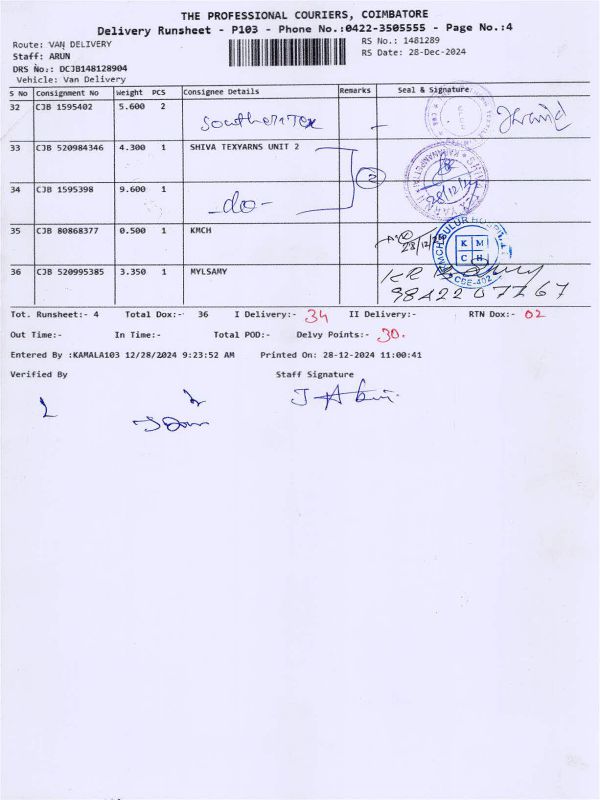 THE PROFESSIONAL COURIERS, COIMBATORE
Delivery Runsheet - P103 - Phone No.:0422-3505555 - Page No.:4
Route: VAN DELIVERY
RS No.: 1481289
Staff: ARUN
RS Date: 28-Dec-2024
DRS No.: DCJB148128904
Vehicle: Van Delivery
S No Consignment No Weight PCS Consignee Details Remarks Seal & Signature
32 CJB 1595402 5.600 2
33 CJB 520984346 4.300 1 SHIVA TEXYARNS UNIT 2
2
28/12/24
34 CJB 1595398 9.600 1 -do-
35 CJB 80868377 0.500 1 KMCH
28/12/24
KMCH SULUR HOSPITAL
K M
C H
CBE-402
36 CJB 520995385 3.350 1 MYLSAMY
9842207767
Tot. Runsheet:- 4 Total Dox:- 36 I Delivery:- 34 II Delivery:- RTN Dox:- 02
Out Time:- In Time:- Total POD:- Delvy Points:- 30.
Entered By :KAMALA103 12/28/2024 9:23:52 AM Printed On: 28-12-2024 11:00:41
Verified By Staff Signature